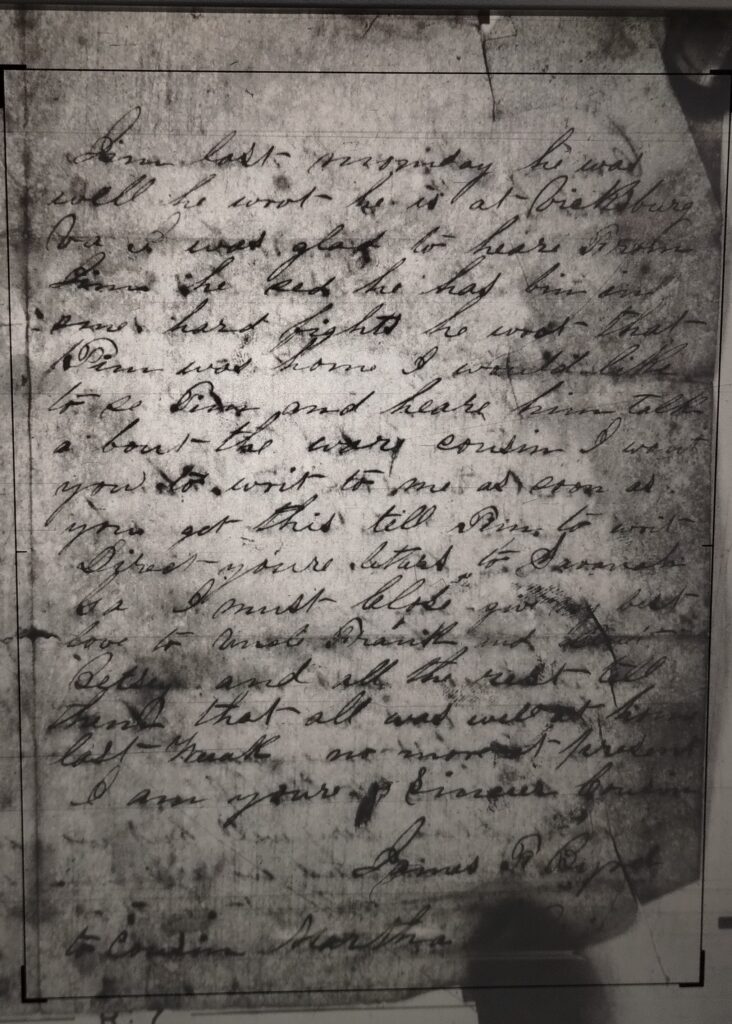 Jim last monday he was
well he wrot he is at Vicksburg
Va I was glad to heare From
Jim he sed he has bin in
some hard fights he wrot that
Pim was home I would like
to se Pim and heare him talk
a bout the ware cousin I want
you to writ to me as soon as
you get this tell Pim to writ
Direct youre letters to Savanah
Ga I must Close give my best
love to Uncle Frank and
Betsy and all the rest tell
them that all was well at home
last Weak no more at present
I am youre Sincier Cousin
James R Byrd
to Cousin Martha